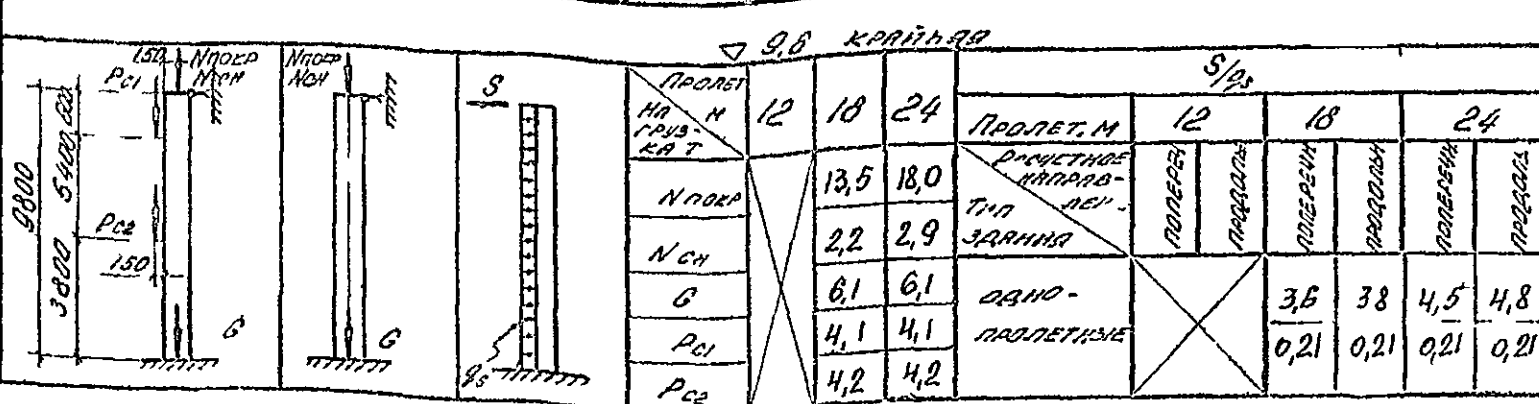 ▽ 9,6 КРАЙНЯЯ
150 Nпокр Nсн
Pс1
9800
600
5400
3800
Pс2
150
G
Nпокр
Nсн
G
S
qs
ПРОЛЕТ М
НАГРУЗ-
КА Т
12 18 24
Nпокр 13,5 18,0
Nсн 2,2 2,9
G 6,1 6,1
Pс1 4,1 4,1
Pс2 4,2 4,2
S/qs
ПРОЛЕТ, М 12 18 24
РАСЧЕТНОЕ
НАПРАВ-
ЛЕН.
ТИП
ЗДАНИЯ
ПОПЕРЕЧ ПРОДОЛЬН ПОПЕРЕЧН ПРОДОЛЬН ПОПЕРЕЧН ПРОДОЛЬ
ОДНО-
ПРОЛЕТНЫЕ
3,6 38 4,5 4,8
0,21 0,21 0,21 0,21